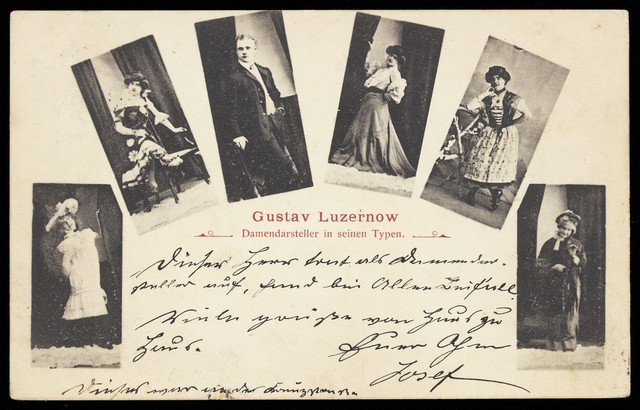 Gustav Luzernow
Damendarsteller in seinen Typen.
Dieser Herr trat als Damendar-
steller auf, fand bei Allen Beifall.
Viele grüße von Haus zu
Haus. Euer Ohm
Josef
Dieses war in der